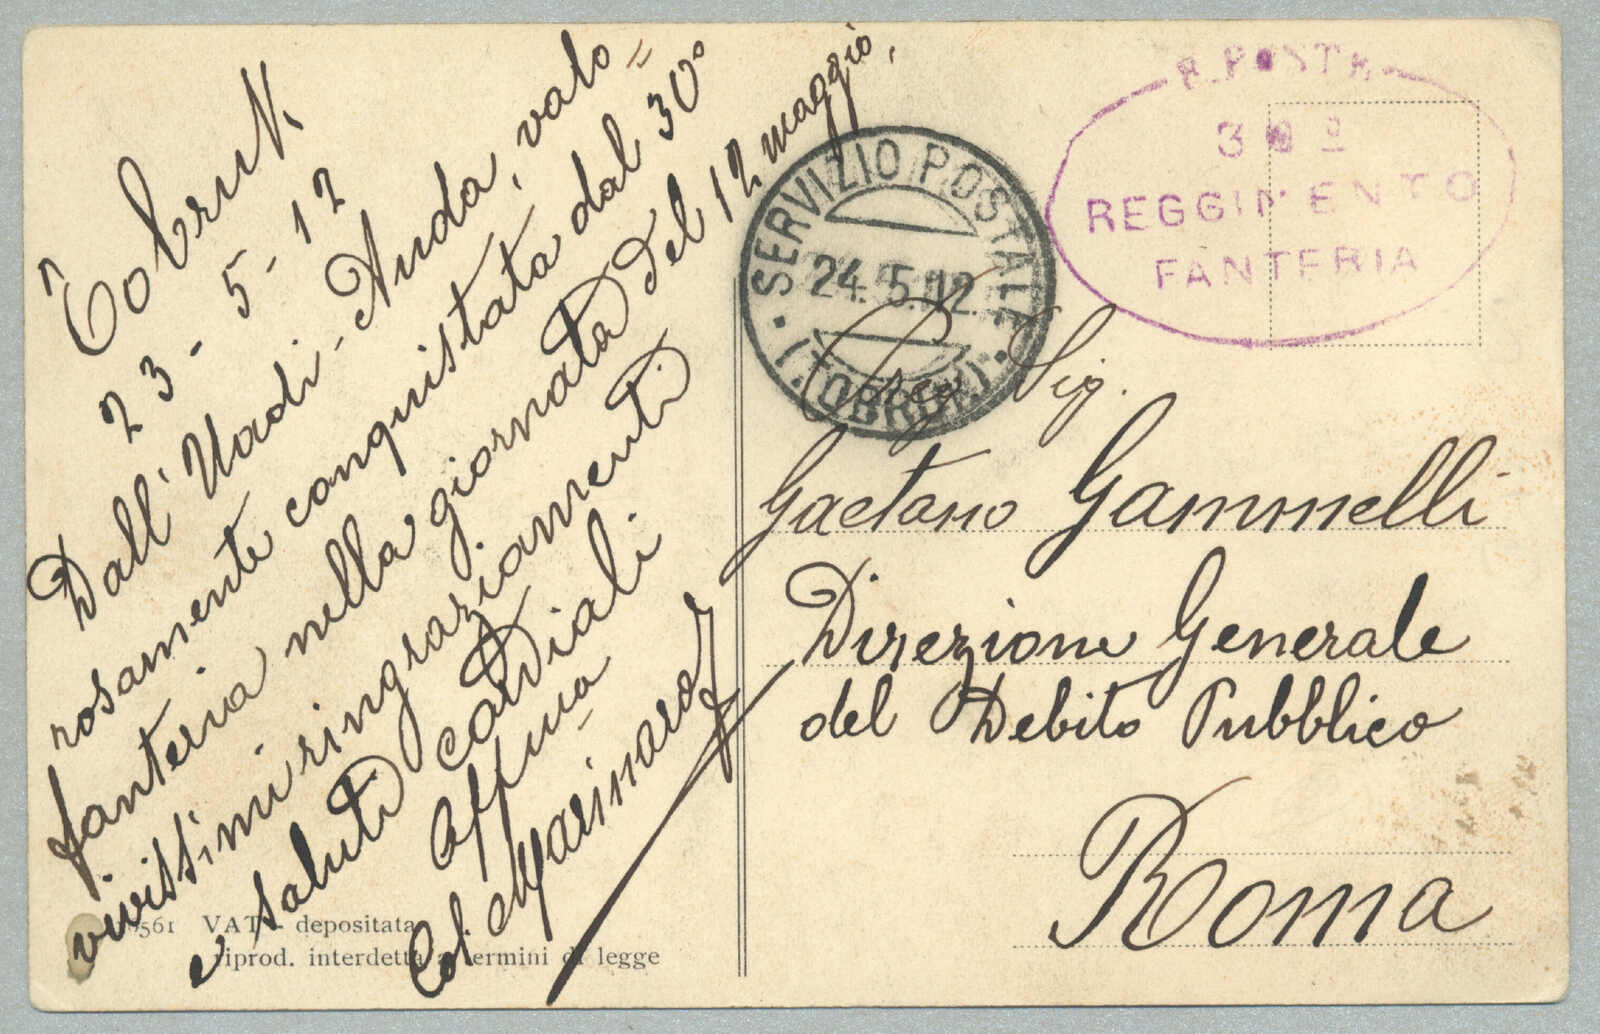 Tobruk.
23-5-12
Dall'Uadi-Auda, valo=
rosamente conquistata dal 30°
fanteria nella giornata del 12 maggio,
vivissimi ringraziamenti
e saluti cordiali
Col
561 VAT - depositata
riprod. interdetta a termini di legge
R. POSTE
30º
REGGIMENTO
FANTERIA
SERVIZIO POSTALE
24.5.12.
(TOBRUK)
Preg Sig.
Gaetano Gammelli
Direzione Generale
del Debito Pubblico
Roma